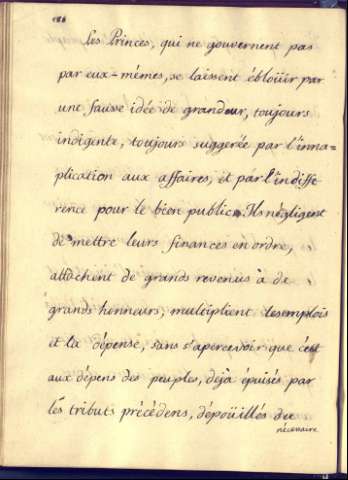 186
Les Princes, qui ne gouvernent pas
par eux-mêmes, se laissent ébloüir par
une fausse idée de grandeur, toujours
indigente, toujours suggerée par l'inna=
plication aux affaires, et par l'indiffe
rence pour le bien public. Ils négligent
de mettre leurs finances en ordre,
attachent de grands revenus à de
grands honneurs, multiplient les emplois
et la dépense, sans s'apercevoir que c'est
aux dépens des peuples, déja épuisés par
les tributs précédens, dépoüillés du
nécessaire